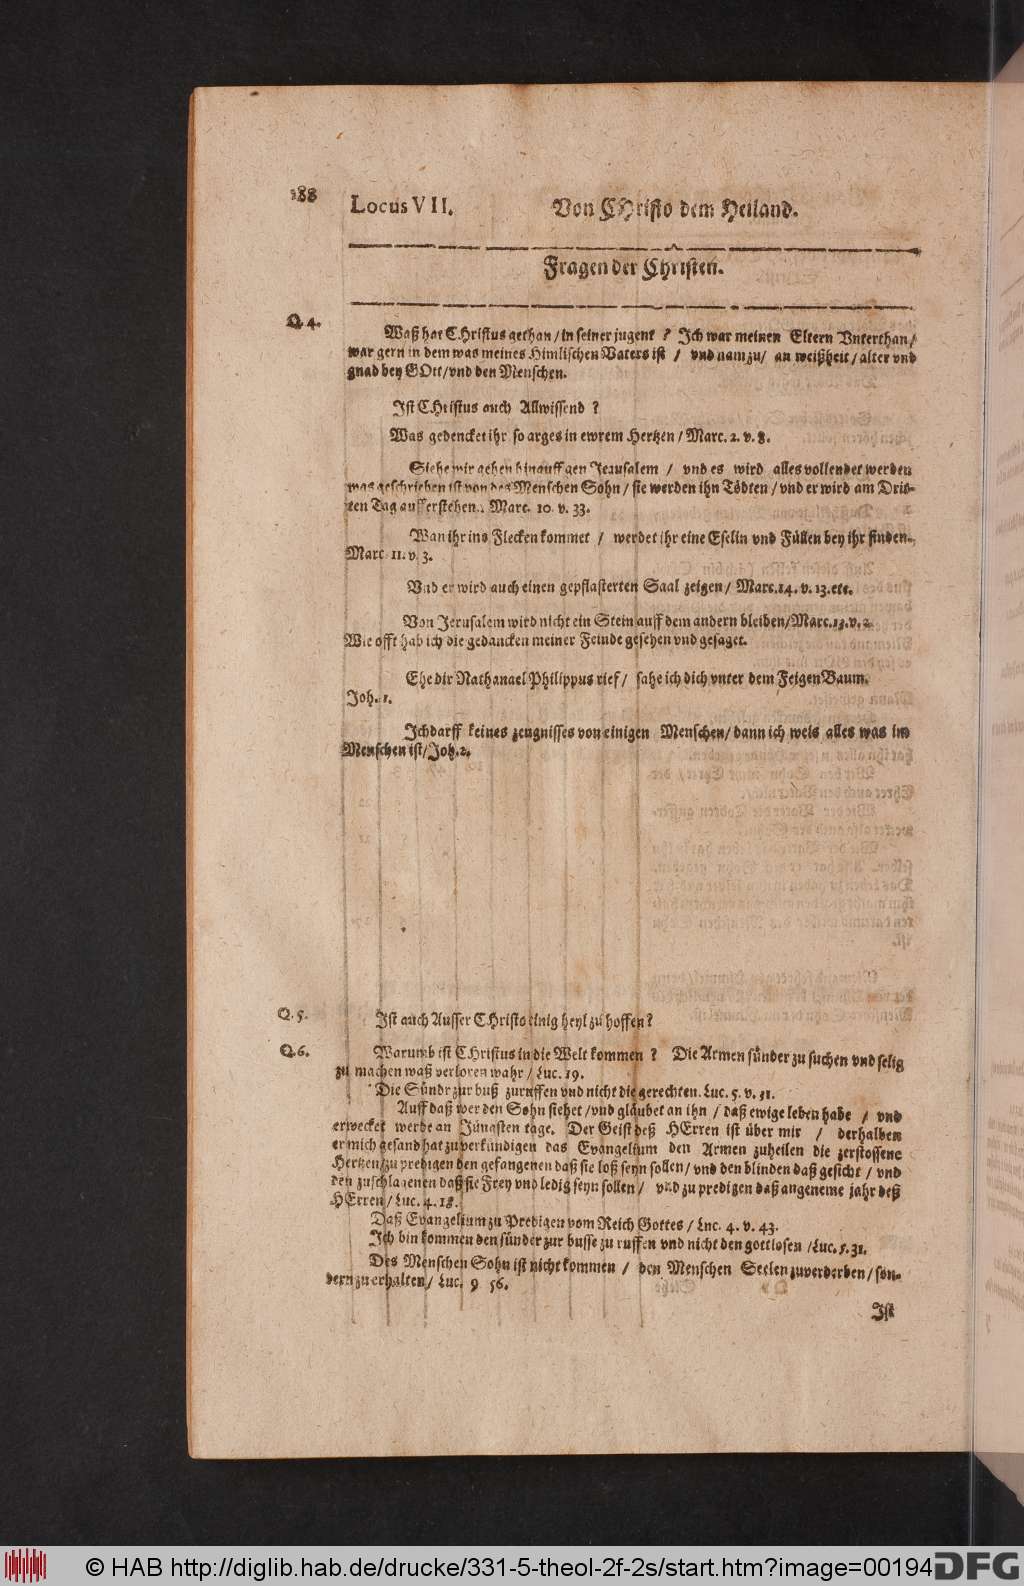 188
Locus VII. Von CHristo dem Heiland.
Fragen der Christen.
Q. 4. Waß hat CHristus gethan / in seiner jugent ? Ich war meinen Eltern Vnterthan /
war gern in dem was meines Himlischen Vaters ist / vnd nam zu / an weißheit / alter vnd
gnad bey GOtt / vnd den Menschen.
Ist CHristus auch Allwissend ?
Was gedencket ihr so arges in ewrem Hertzen / Marc. 2. v. 8.
Siehe wir gehen hinauff gen Jerusalem / vnd es wird alles vollendet werden
was geschrieben ist von des Menschen Sohn / sie werden ihn Tödten / vnd er wird am Drit-
ten Tag aufferstehen. Marc. 10. v. 33.
Wan ihr ins Flecken kommet / werdet ihr eine Eselin vnd Füllen bey ihr finden.
Marc. 11. v. 3.
Vnd er wird auch einen gepflasterten Saal zeigen / Marc. 14. v. 13. etc.
Von Jerusalem wird nicht ein Stein auff dem andern bleiben / Marc. 13. v. 2.
Wie offt hab ich die gedancken meiner Feinde gesehen vnd gesaget.
Ehe dir Nathanael Philippus rief / sahe ich dich vnter dem Feigen Baum.
Joh. 1.
Ich darff keines zeugnisses von einigen Menschen / dann ich weis alles was im
Menschen ist / Joh. 2.
Q. 5. Ist auch Ausser CHristo einig heyl zu hoffen ?
Q. 6. Warumb ist CHristus in die Welt kommen ? Die Armen sünder zu suchen vnd selig
zu machen waß verloren wahr / Luc. 19.
Die Sündr zur buß zuruffen vnd nicht die gerechten. Luc. 5. v. 31.
Auff daß wer den Sohn siehet / vnd gläubet an ihn / daß ewige leben habe / vnd
erwecket werde an Jüngsten tage. Der Geist deß HErren ist über mir / derhalben
er mich gesand hat zuverkündigen das Evangelium den Armen zuheilen die zerstossene
Hertzen / zu predigen den gefangenen daß sie loß seyn sollen / vnd den blinden daß gesicht / vnd
den zuschlagenen daß sie Frey vnd ledig seyn sollen / vnd zu predigen daß angeneme jahr deß
HErren / Luc. 4. 18.
Daß Evangelium zu Predigen vom Reich Gottes / Luc. 4. v. 43.
Ich bin kommen den sünder zur busse zu ruffen vnd nicht den gottlosen / Luc. 5. 31.
Des Menschen Sohn ist nicht kommen / den Menschen Seelen zuverderben / son-
dern zu erhalten / Luc. 9 56.
Ist
© HAB http://diglib.hab.de/drucke/331-5-theol-2f-2s/start.htm?image=00194
DFG